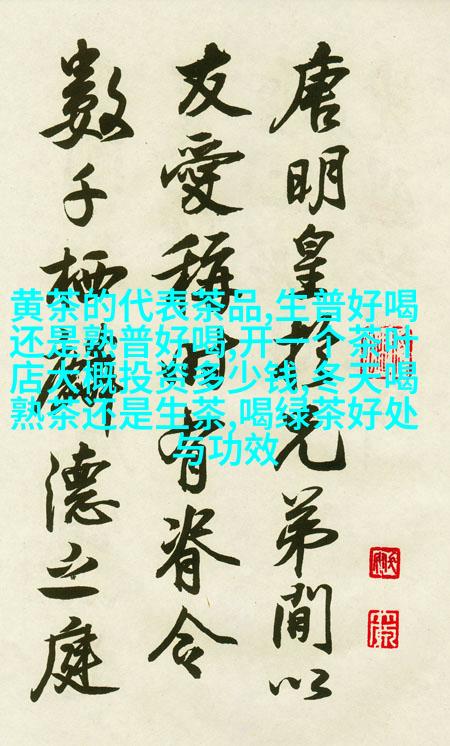 唐明皇於兄弟間以
友愛稱時有脊令
數千栖麟德之庭
黄茶的代表茶品,生普好喝
还是熟普好喝,开一个茶叶
店大概投资多少钱,冬天喝
熟茶还是生茶,喝绿茶好处
与功效